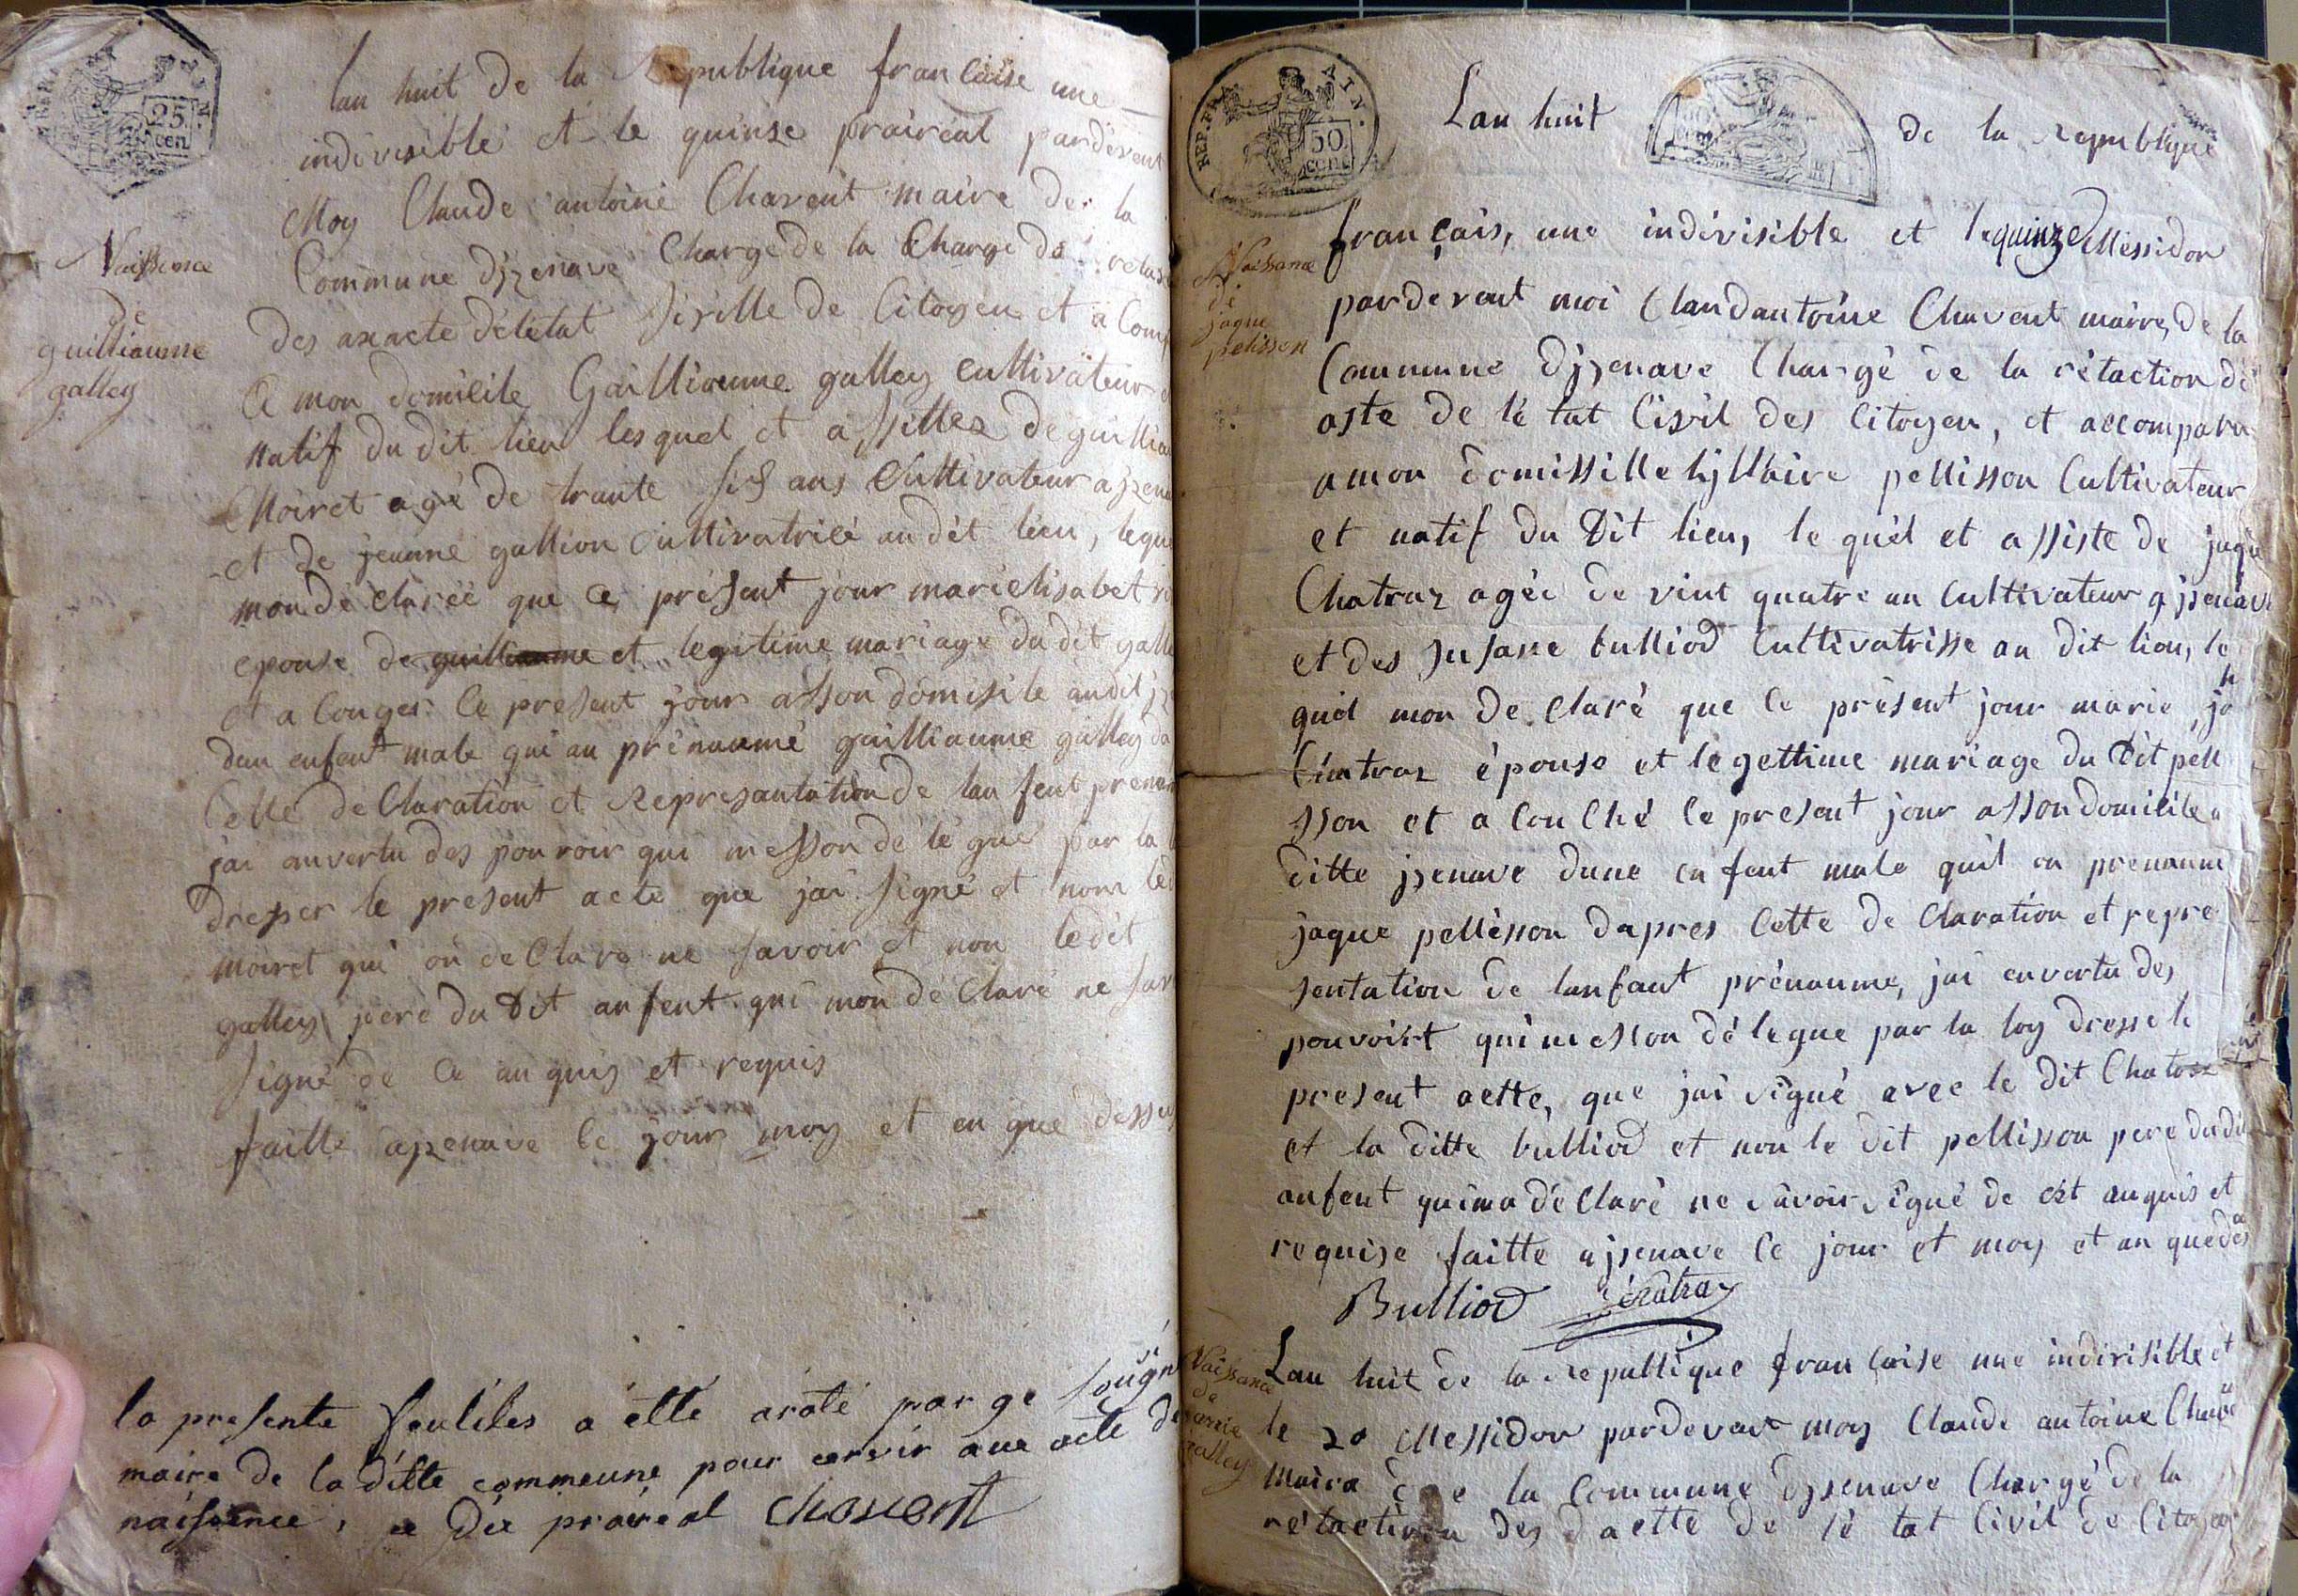 REP. FRA. AIN.
25 cen
Lan huit de la Republique francaise une
indivisible et le quinse prairéal pardevent
Moy Claude antoine Chavent maire de la
Naissence
de
guilliaume
galley
Commune djzenave Chargé de la Charge de
des axacte deletat siville de Citoyen et a Comp
a mon domicile Guilliaume galley cultivateur
natif du dit lieu lesquel et assistez de guillia
Moiret agé de trante six ans Cultivateur a jzena
et de jeanne gullion Cultivatrice audit lieu, lequ
mon dé clarée que ce présent jour marielisabet
epouse de guilliaume et legitime mariage du dit galle
et a Couger ce present jour asson domisile audit jz
dun enfent male qui an prénaumé guilliaume galley da
Celle de Claration et Represantation de lan fent prenau
jai anvertu des pouvoir qui messon dé lé gué par la
dresser le present acte que jai signé et nom le
moiret qui on de Clare ne savoir et non ledit
galley pere du Dit anfent qui mon dé Claré ne sav
signé de ce anquis et requis
faitte a jzenave le jour moy et en que dessus
la presente feuliles a etté araté par ge sougn
maire de la ditte commeune pour cervir aux acte de
naissence, ce dix prairéal Chavent
REP. FRA. AIN.
50 cent
Lan huit de la Republique
Naissance
de
jaque
pelisson
français, une indivisible et le quinze Messidor
pardevent moi Claudantoine Chavent mairre, de la
Commune djzenave Chargé de la rétaction de
aste de lé tat Cisvil des Citoyen, et accomparu
a mon domissille hjllaire pellisson Cultivateur
et natif du Dit lieu, le quel et assiste de jaque
Chatraz agée de vint quatre an Cultivateur a jzenave
et des susane bulliod Cultivatrisse an dit lieu, le
quel mon de Claré que ce présent jour marie, jo
Chatraz épouse et legettime mariage du Dit pell
sson et a Couché ce present jour asson domicile a
ditte jzenave dune enfent male quil on prenaum
jaque pellésson dapres Cette de Claration et repre
sentation de lanfant prénaume, jai envertu des
pouvoirt qui messon délegue par la loy dresse le
present actte, que jai signé avec le dit Chatraz
et la ditte bulliod et non le dit pellisson pere dudit
anfent quima déclaré ne savoir signé de cet anquis et
requise faitte a jsenave le jour et moy et an quede
Bulliod Chatraz
Naissance
de
marie
galley
Lan huit de la Republique francaise une indivisible et
le 20 Messidor pardevant moy Claude antoine Chave
Maire de la Commune djsenave Chargé de la
rétaction des dactte de lé tat Civil de Citoyen